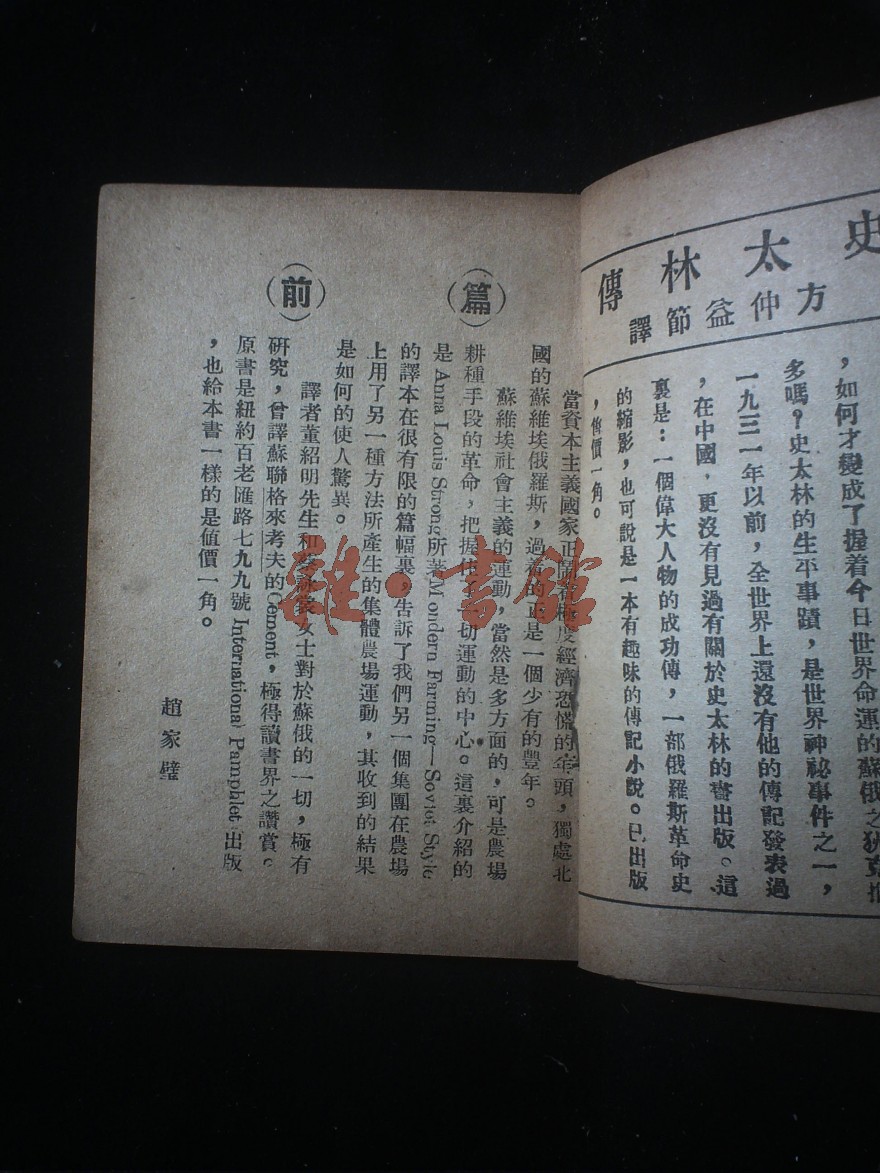 史太林傳
方仲益節譯
，如何才變成了握着今日世界命運的蘇俄之狄克推
多嗎？史太林的生平事蹟，是世界神祕事件之一，
一九三一年以前，全世界上還沒有他的傳記發表過
，在中國，更沒有見過有關於史太林的書出版。這
裏是：一個偉大人物的成功傳，一部俄羅斯革命史
的縮影，也可說是一本有趣味的傳記小說。已出版
，值價一角。
篇前
當資本主義國家正鬧着極度經濟恐慌的年頭，獨處北
國的蘇維埃俄羅斯，過着的正是一個少有的豐年。
蘇維埃社會主義的運動，當然是多方面的，可是農場
耕種手段的革命，把握住了一切運動的中心。這裏介紹的
是 Anna Louis Strong所著Mondern Farming—Soviet Style
的譯本在很有限的篇幅裏，告訴了我們另一個集團在農場
上用了另一種方法所產生的集體農場運動，其收到的結果
是如何的使人驚異。
譯者董紹明先生和蔡詠裳女士對於蘇俄的一切，極有
研究，曾譯蘇聯格來考夫的Cement，極得讀書界之讚賞。
原書是紐約百老匯路七九九號 International Pamphlet 出版
，也給本書一樣的是値價一角。
趙家璧
雜·書館